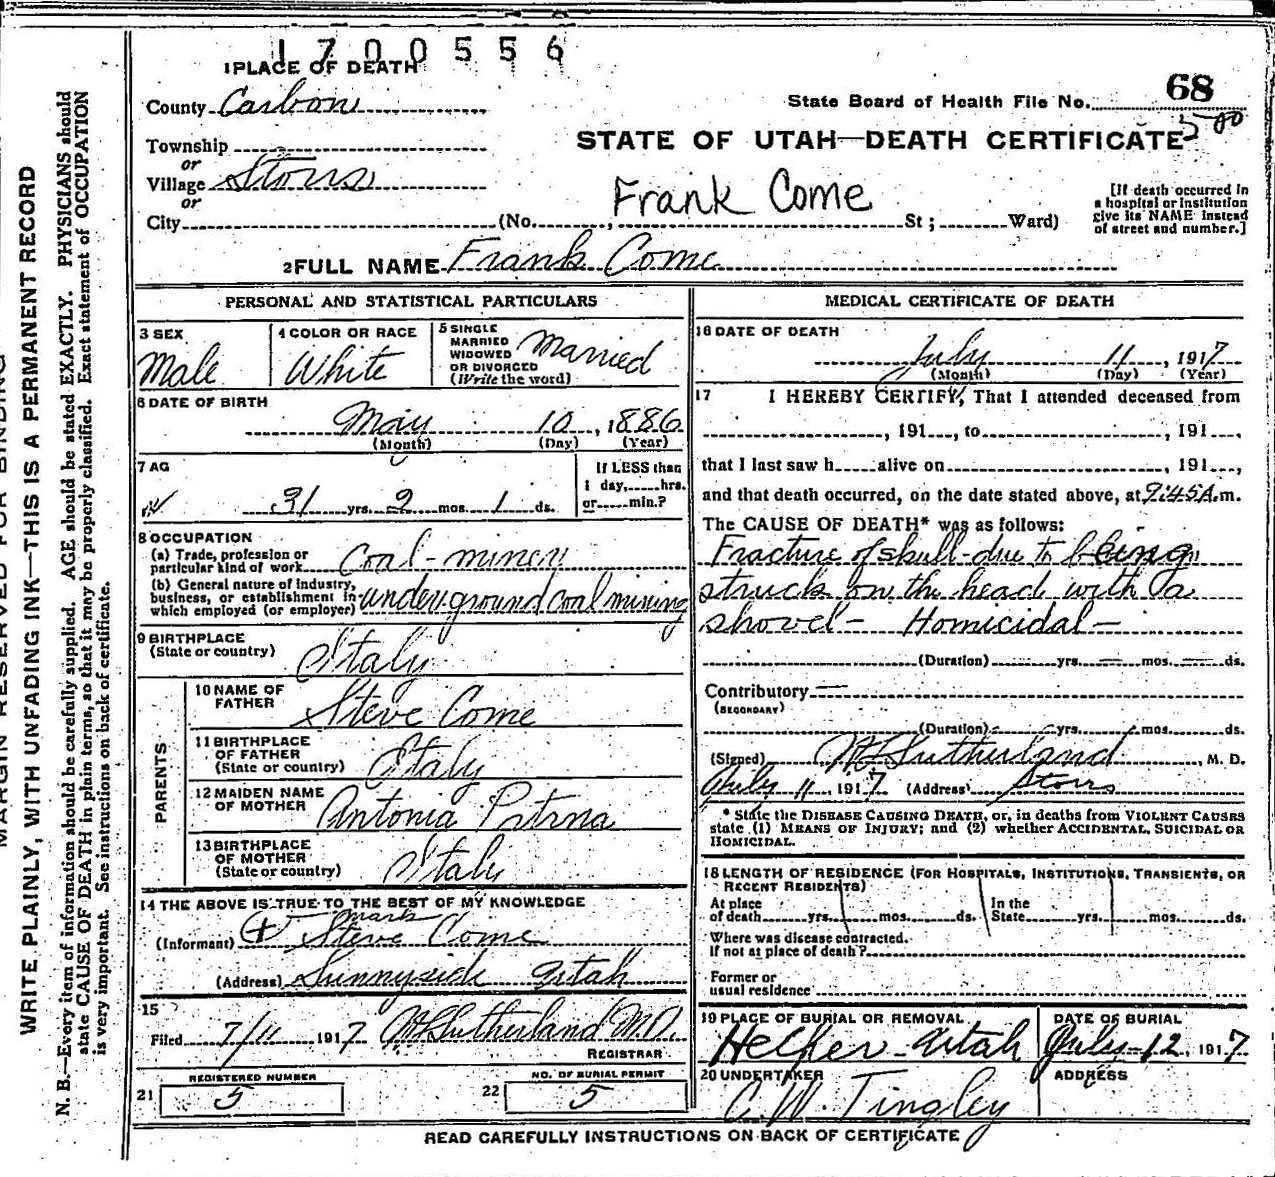 1700556
1 PLACE OF DEATH
County Carbon
State Board of Health File No. 68
Township
or
Village Storrs
or
City (No. , St ; Ward)
STATE OF UTAH—DEATH CERTIFICATE
Frank Come
[If death occurred in
a hospital or institution
give its NAME instead
of street and number.]
2 FULL NAME Frank Come
PERSONAL AND STATISTICAL PARTICULARS
3 SEX
Male
4 COLOR OR RACE
White
5 SINGLE
MARRIED
WIDOWED
OR DIVORCED
(Write the word)
Married
6 DATE OF BIRTH
May 10, 1886
(Month) (Day) (Year)
7 AG
31 yrs. 2 mos. 1 ds.
If LESS than
1 day, hrs.
or min.?
8 OCCUPATION
(a) Trade, profession or
particular kind of work Coal-miner
(b) General nature of industry,
business, or establishment in
which employed (or employer) underground coal mining
9 BIRTHPLACE
(State or country) Italy
PARENTS
10 NAME OF
FATHER Steve Come
11 BIRTHPLACE
OF FATHER
(State or country) Italy
12 MAIDEN NAME
OF MOTHER Antonia
13 BIRTHPLACE
OF MOTHER
(State or country) Italy
14 THE ABOVE IS TRUE TO THE BEST OF MY KNOWLEDGE
mark
(Informant) + Steve Come
(Address) Sunnyside Utah
15
Filed 7/11 1917 Sutherland M.D.
REGISTRAR
REGISTERED NUMBER
21 5
NO. OF BURIAL PERMIT
22 5
MEDICAL CERTIFICATE OF DEATH
16 DATE OF DEATH
July 11, 1917
(Month) (Day) (Year)
17 I HEREBY CERTIFY, That I attended deceased from
, 191 , to , 191 ,
that I last saw h alive on , 191 ,
and that death occurred, on the date stated above, at 9:45 A. m.
The CAUSE OF DEATH* was as follows:
Fracture of skull-due to being
struck on the head with a
shovel- Homicidal-
(Duration) yrs. mos. ds.
Contributory
(SECONDARY)
(Duration) yrs. mos. ds.
(Signed) Sutherland, M. D.
July 11, 1917 (Address) Storrs
* State the DISEASE CAUSING DEATH, or, in deaths from VIOLENT CAUSES
state (1) MEANS OF INJURY; and (2) whether ACCIDENTAL, SUICIDAL OR
HOMICIDAL.
18 LENGTH OF RESIDENCE (FOR HOSPITALS, INSTITUTIONS, TRANSIENTS, OR
RECENT RESIDENTS)
At place
of death yrs. mos. ds.
In the
State yrs. mos. ds.
Where was disease contracted.
If not at place of death?
Former or
usual residence
19 PLACE OF BURIAL OR REMOVAL
Helper Utah
DATE OF BURIAL
July-12, 1917
20 UNDERTAKER
C. W. Tingley
ADDRESS
READ CAREFULLY INSTRUCTIONS ON BACK OF CERTIFICATE
WRITE PLAINLY, WITH UNFADING INK—THIS IS A PERMANENT RECORD
N. B.—Every item of information should be carefully supplied. AGE should be stated EXACTLY. PHYSICIANS should
state CAUSE OF DEATH in plain terms, so that it may be properly classified. Exact statement of OCCUPATION
is very important. See instructions on back of certificate.